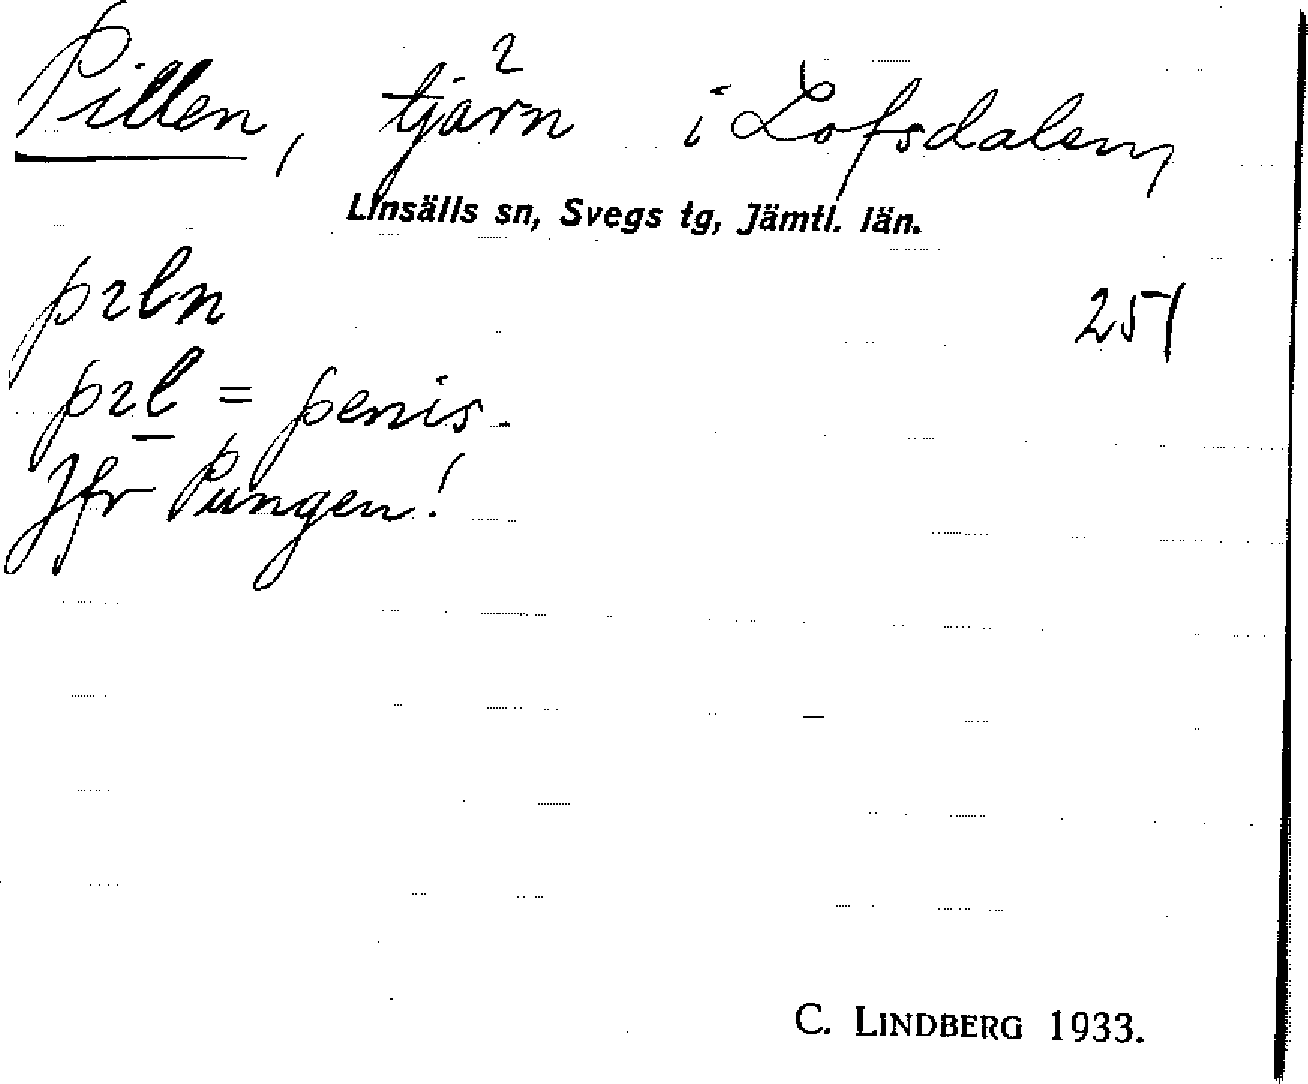 Pillen, tjärn² i Lofsdalen,
Linsälls sn, Svegs tg, Jämtl. län.
pıln
251
pıl = penis.
Jfr Pungen!
C. LINDBERG 1933.